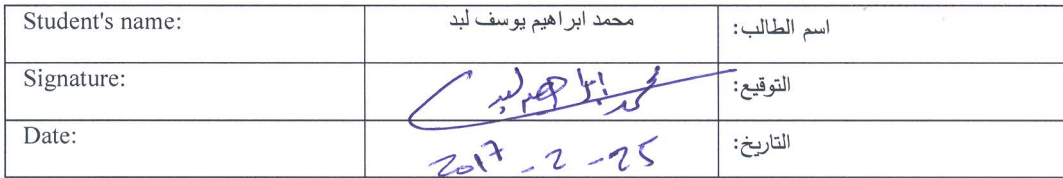 Student's name: محمد ابراهيم يوسف لبد اسم الطالب:
Signature: محمد ابراهيم لبد التوقيع:
Date: 2017 - 2 - 25 التاريخ: